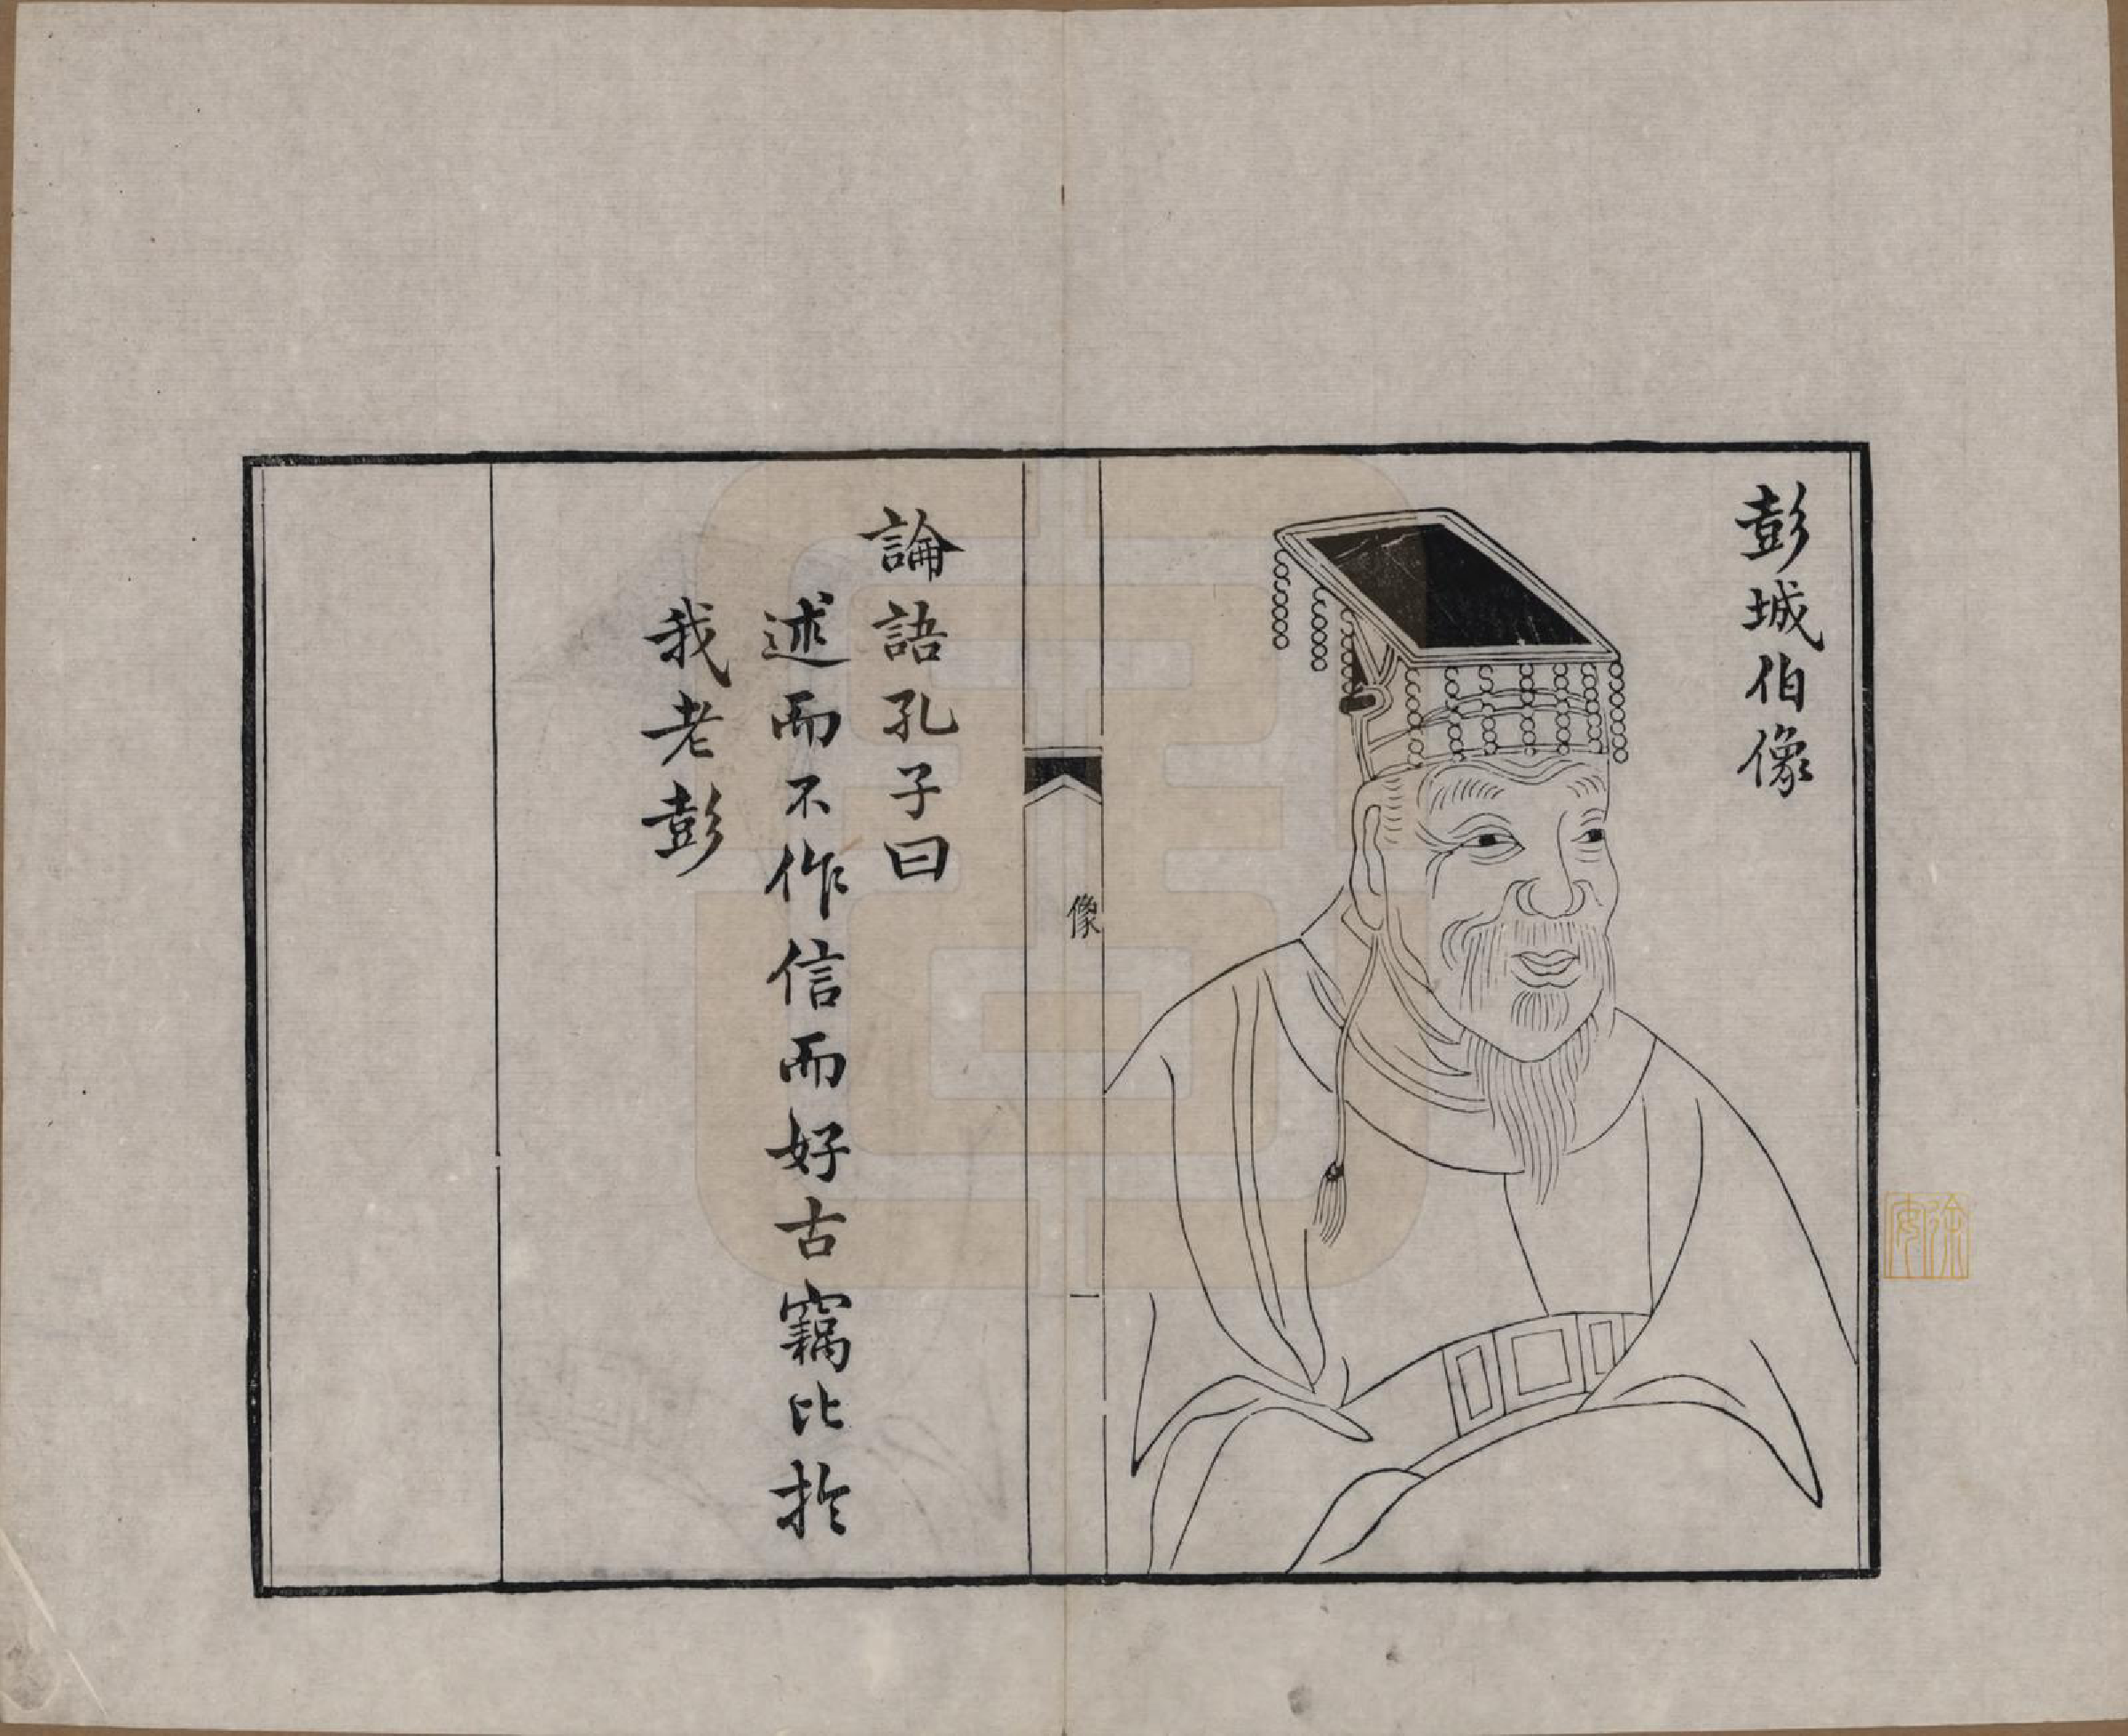 彭城伯像
像
一
論語孔子曰
述而不作信而好古竊比於
我老彭